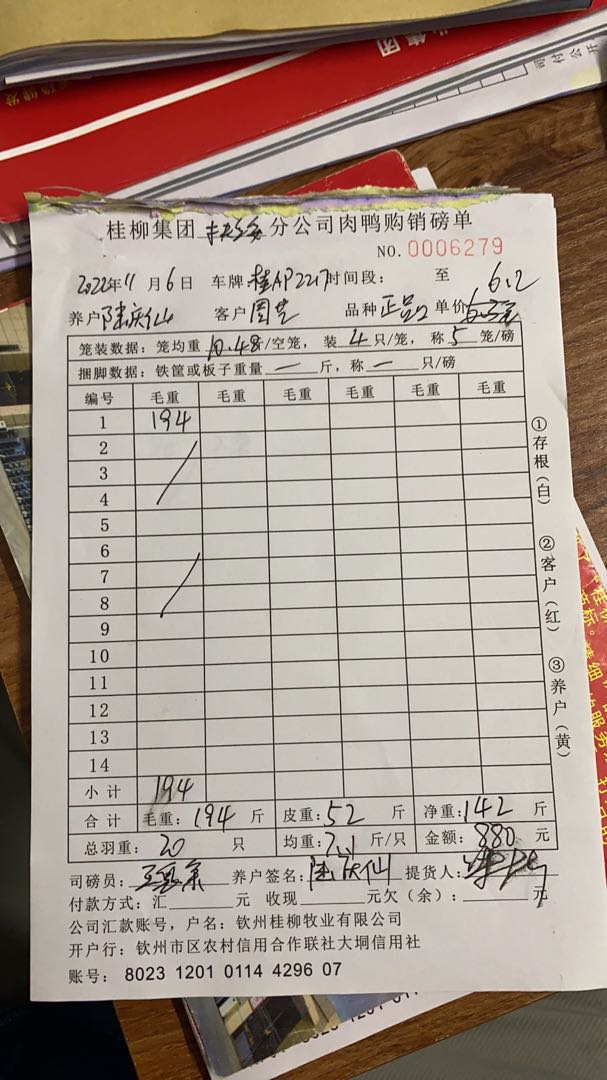 桂柳集团 分公司肉鸭购销磅单
NO. 0006279
2022年11月6日 车牌：桂AP2217 时间段： 至
6.2
养户 陆庆仙 客户 周芝 品种 正品 单价
笼装数据：笼均重 10.48/空笼，装 4 只/笼，称 5 笼/磅
捆脚数据：铁筐或板子重量 — 斤，称 — 只/磅
编号 毛重 毛重 毛重 毛重 毛重 毛重
1 194
2
3
4
5
6
7
8
9
10
11
12
13
14
小计 194
合计 毛重：194 斤 皮重：52 斤 净重：142 斤
总羽重：20 只 均重：7.1 斤/只 金额：880 元
司磅员： 养户签名：陆庆仙 提货人：
付款方式：汇 元 收现 元欠（余）： 元
公司汇款账号，户名：钦州桂柳牧业有限公司
开户行：钦州市区农村信用合作联社大垌信用社
账号：8023 1201 0114 4296 07
①存根（白） ②客户（红） ③养户（黄）
集团